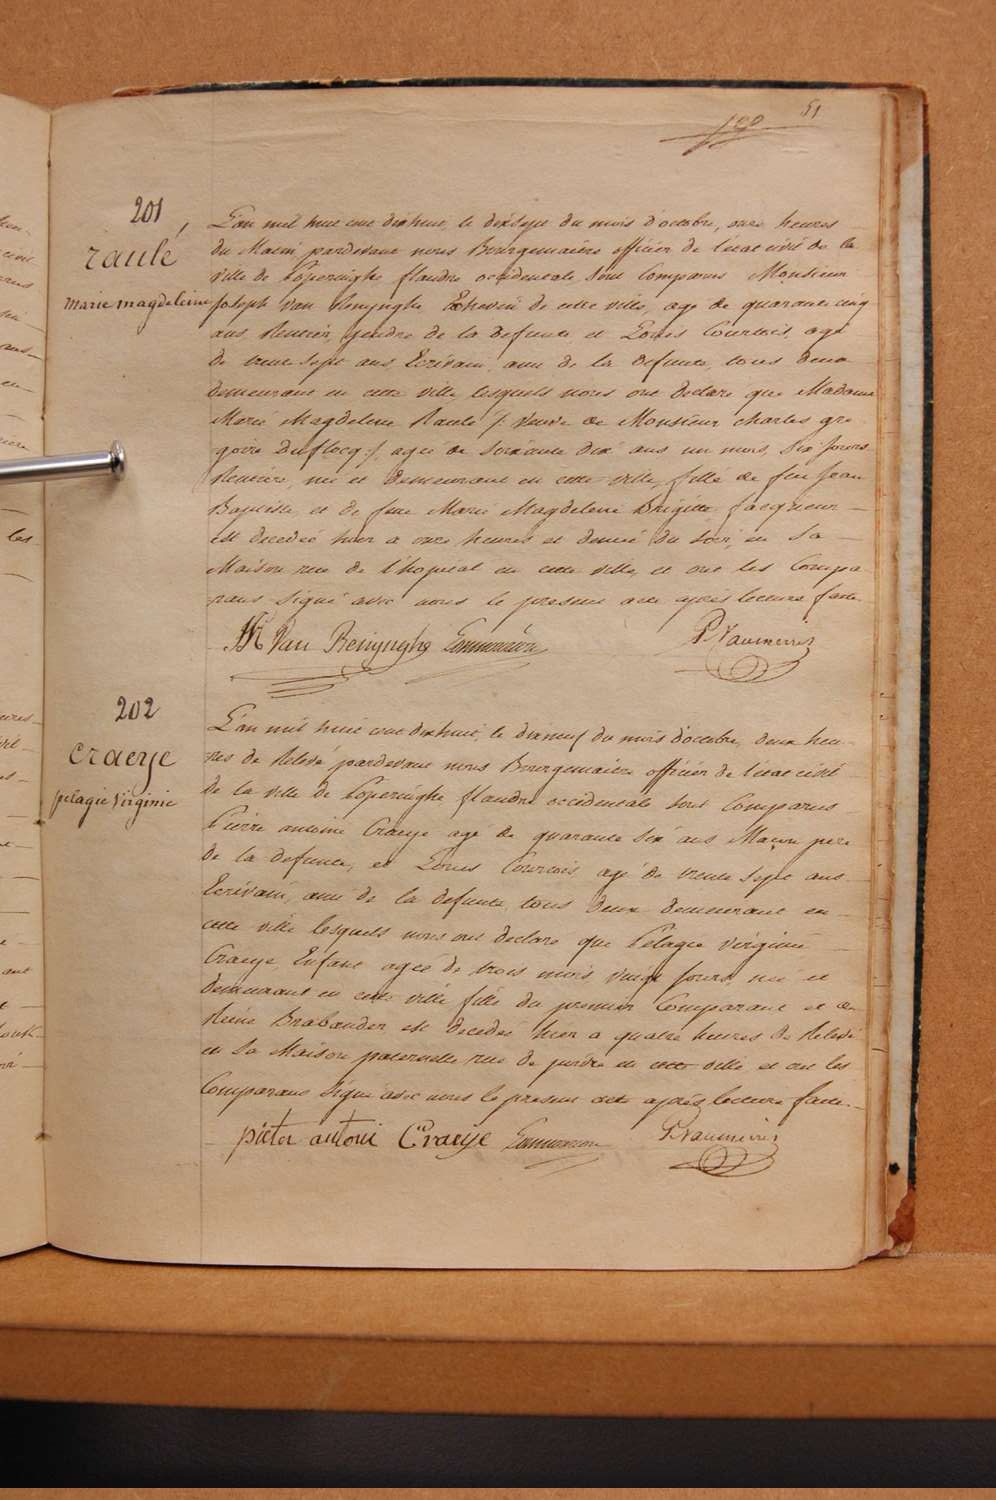 51
100
201
raulé
marie magdeleine
L'an mil huit cent dixhuit, le dixsept du mois d'octobre, onze heures
du Matin pardevant nous Bourguemaitre officier de l'etat civil de la
ville de Poperinghe flandre occidentale sont Comparus Monsieur
Joseph Van Renynghe Echevin de cette ville, agé de quarante cinq
ans Rentier, gendre de la defunte et Louis Courtois, agé
de trente sept ans Ecrivain, ami de la defunte, tous deux
demeurant en cette ville lesquels nous ont declaré que Madame
Marie Magdelene Raulé /: Veuve de Monsieur charles gre-
goire Duflocq :/ agée de soixante dix ans un mois, six jours
Rentiere, née et demeurant en cette ville, fille de feu Jean
Baptiste et de feue Marie Magdelene Brigitte Jacqueur
est decedée hier a onze heures et demie du soir, en Sa
Maison rue de l'hopital en cette ville, et ont les Compa-
rans Signé avec nous le present acte après lecture faite.
Van Renynghe
202
craeye
pelagie Virginie
L'an mil huit cent dixhuit, le dixneuf du mois d'octobre, deux heu-
res de Relevé pardevant nous Bourguemaitre officier de l'etat civil
de la ville de Poperinghe flandre occidentale sont Comparus
Pierre antoine Craeye agé de quarante six ans Maçon pere
de la defunte, et Louis Courtois agé de trente sept ans
Ecrivain, ami de la defunte, tous deux demeurant en
cette ville lesquels nous ont declaré que Pelagie Virginie
Craeye Enfant agée de trois mois vingt jours, née et
demeurant en cette ville fille du premier Comparant et de
Reine Brabander est decedée hier a quatre heures de Relevé
en Sa Maison paternelle rue de en cette ville et ont les
Comparans Signé avec nous le present acte après lecture faite.
pieter antoni Craeye